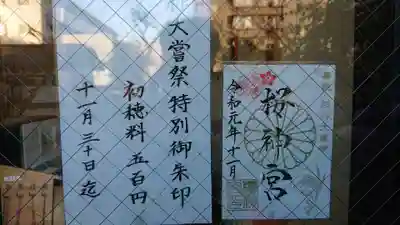 大嘗祭特別御朱印
初穂料 五百円
十一月三十日迄
桜神宮
令和元年十一月